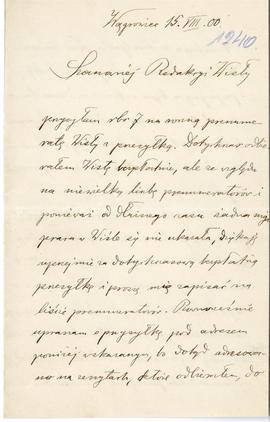 Wągrowiec 15. VIII. 00.
1240.
Szanownej Redakcyi Wisły
rbr 7 na roczną prenume-
ratę Wisły z przesyłką. Dotychczas odbie-
rałem Wisłę bezpłatnie, ale ze względu
na niewielką liczbę prenumeratorów i
ponieważ od dłuższego czasu żadna moja
praca w Wiśle się nie ukazała, dziękuję
uprzejmie za dotychczasową bezpłatną
przesyłkę i proszę mię zapisać na
liście prenumeratorów. Równocześnie
upraszam o przysyłkę pod adresem
poniżej wskazanym, bo dotąd adresowa-
no na zeszytach, które odbierałem, do